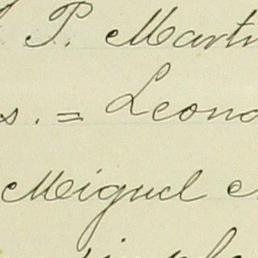 P. Mart
s. = Leono
Miguel